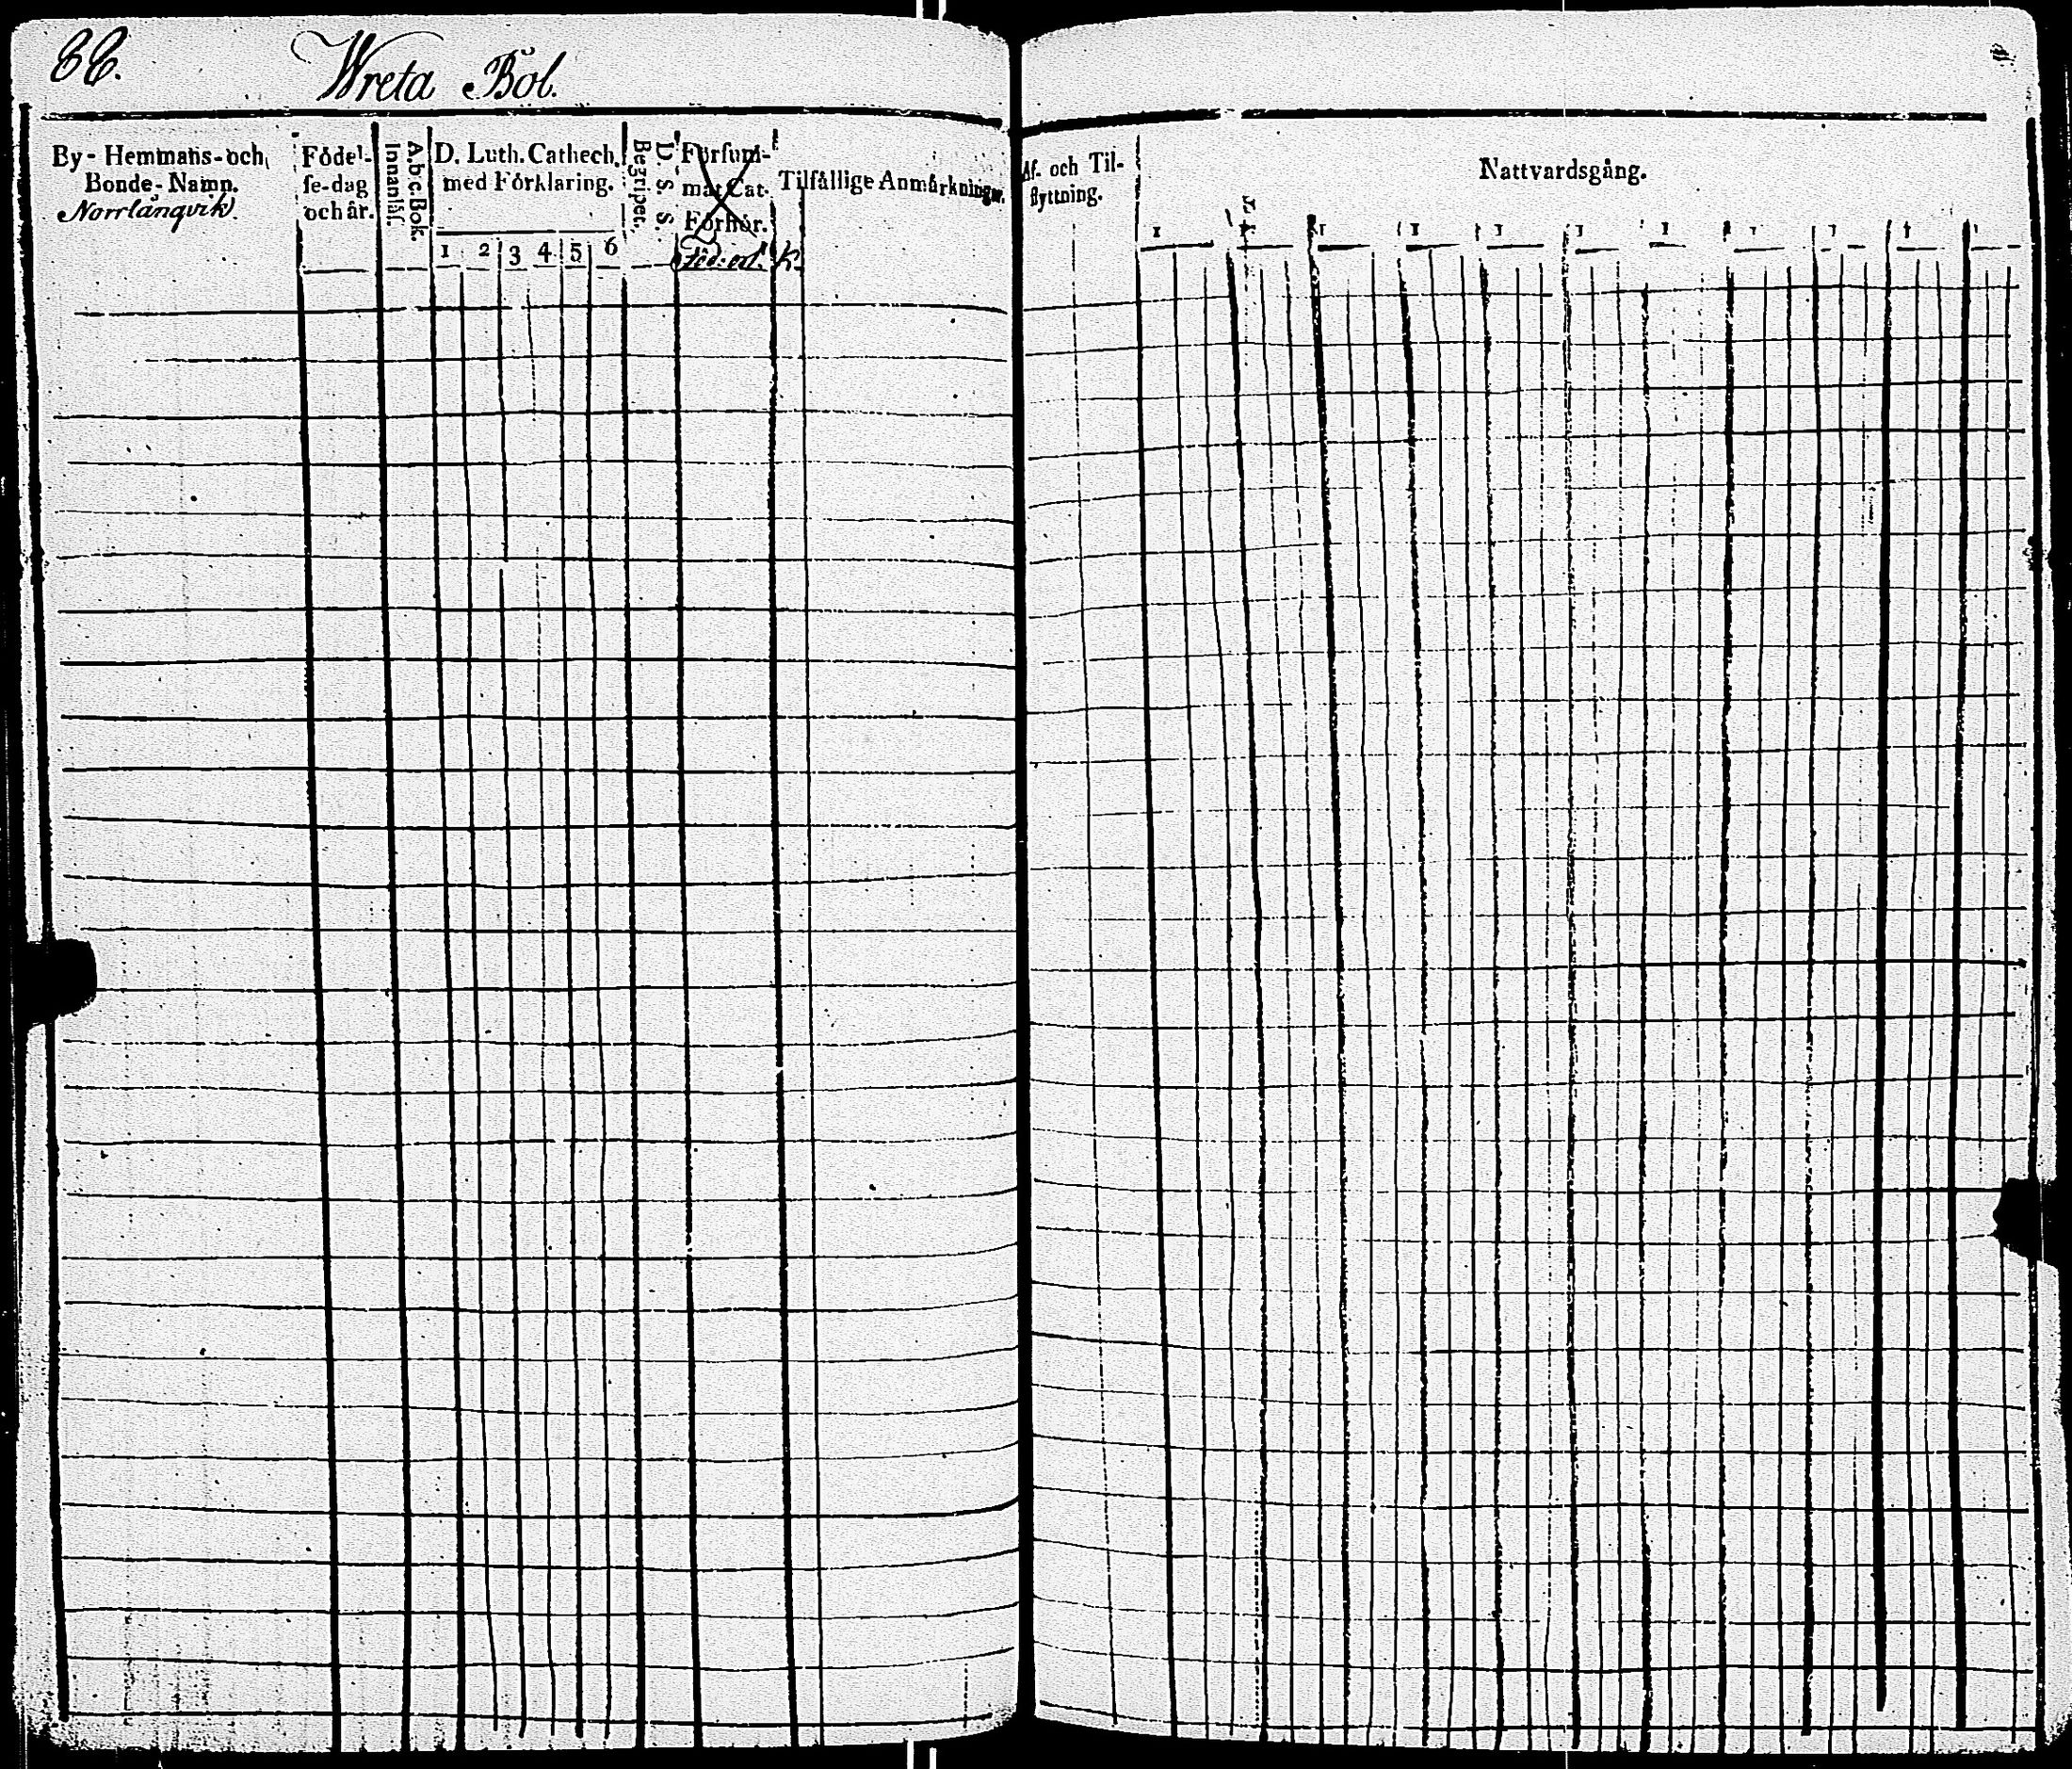 86.
Wreta Bol.
By-Hemmans-och
Bonde-Namn.
Norrlångvik.
Födel-
se-dag
och år.
A.b.c.Bok.
Innanläs.
D. Luth. Cathech.
med Förklaring.
1 2 3 4 5 6
D. S. S.
Begripet.
Försum-
mat Cat.
Förhör.
K.
Tilfällige Anmärkningar.
Af- och Til-
flyttning.
Nattvardsgång.
1 1 1 1 1 1 1 1 1 1